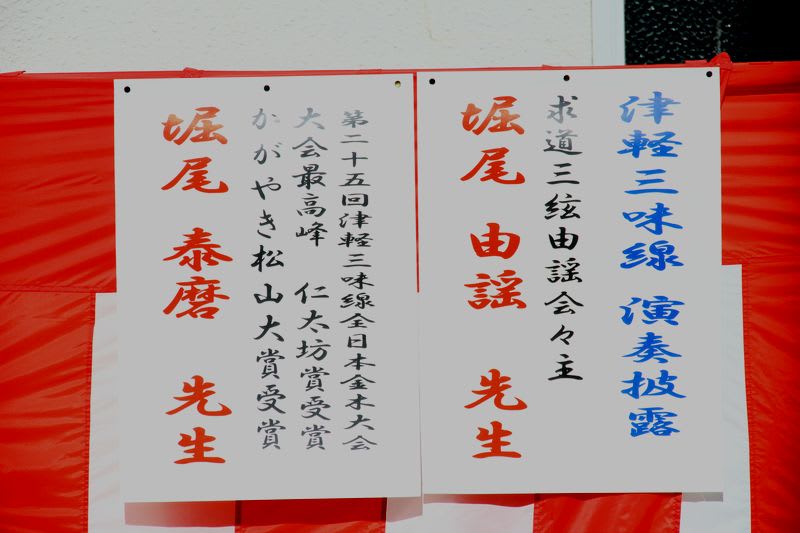 津軽三味線 演奏披露
求道三絃由謡会々主
堀尾 由謡 先生
第二十五回津軽三味線全日本金木大会
大会最高峰 仁太坊賞受賞
かがやき松山大賞受賞
堀尾 泰磨 先生